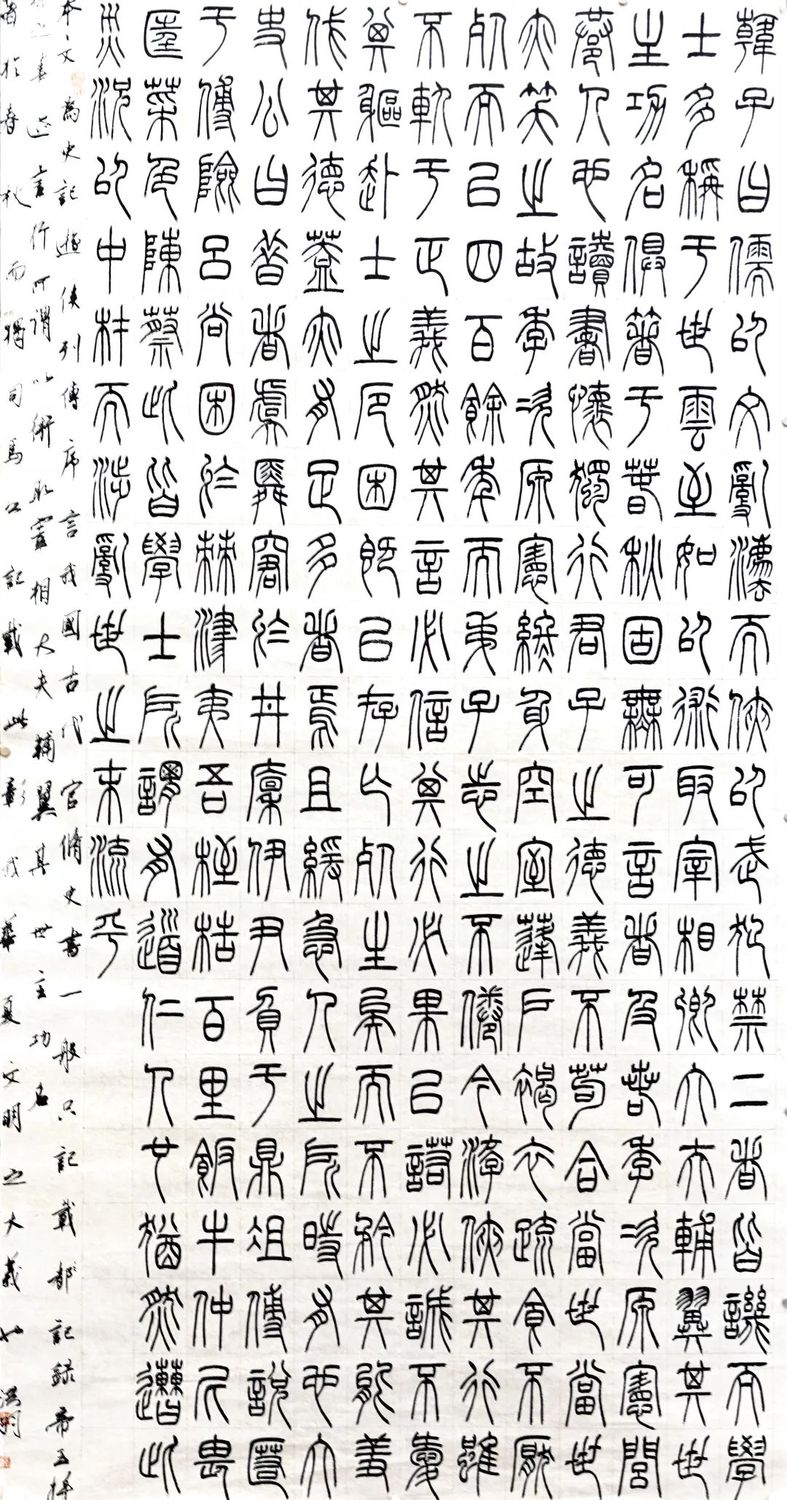 韓子曰儒以文亂灋而俠以武犯禁二者皆譏而學
士多稱于世雲至如以術取宰相卿大夫輔翼其世
主功名俱著于春秋固無可言者及若季次原憲閭
巷人也讀書懷獨行君子之德義不苟合當世當世
亦笑之故季次原憲終身空室蓬戶褐衣疏食不厭
死而已四百餘年而弟子志之不倦今游俠其行雖
不軌于正義然其言必信其行必果已諾必誠不愛
其軀赴士之厄困既已存亡死生矣而不矜其能羞
伐其德蓋亦有足多者焉且緩急人之所時有也太
史公曰昔者虞舜窘於井廩伊尹負于鼎俎傅說匿
于傅險呂尚困於棘津夷吾桎梏百里飯牛仲尼畏
匡菜色陳蔡此皆學士所謂有道仁人也猶然遭此
災況以中材而涉亂世之末流乎
本文為史記遊俠列傳序言我國古代官脩史書一般只記載都記錄帝王將
相之事迹言行所謂以術取宰相大夫輔翼其世主功名
著於春秋而獨司馬公記載此彰我華夏文明之大義也